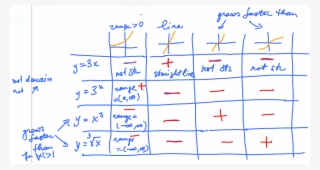 range>0 line grows faster than
y=3x − + − −
not str straight line not str not str
y=3ˣ range + − − −
=(0,∞)
y=x³ − − + −
range
=(-∞,∞)
y=³√x range − − − +
=(-∞,∞)
not domain
grows
faster
than
|x|>1